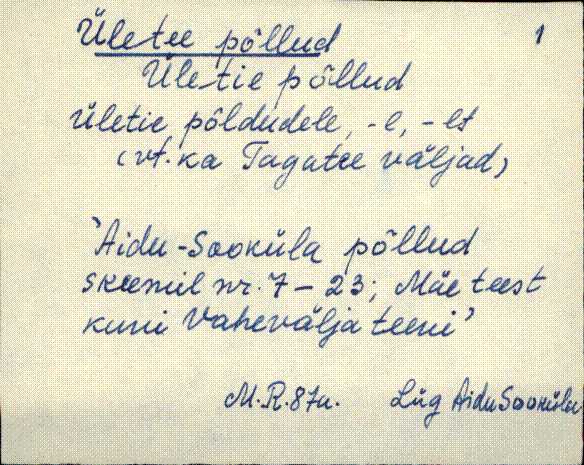 Ületee põllud 1
Ületie põllud
ületie põldudele, -l, -lt
(vt. ka Tagatee väljad)
'Aidu-Sooküla põllud
skeemil nr. 7 - 23; Mäe teest
kuni Vahevälja teeni'
M.R. 87a. Lüg Aidu Sooküla